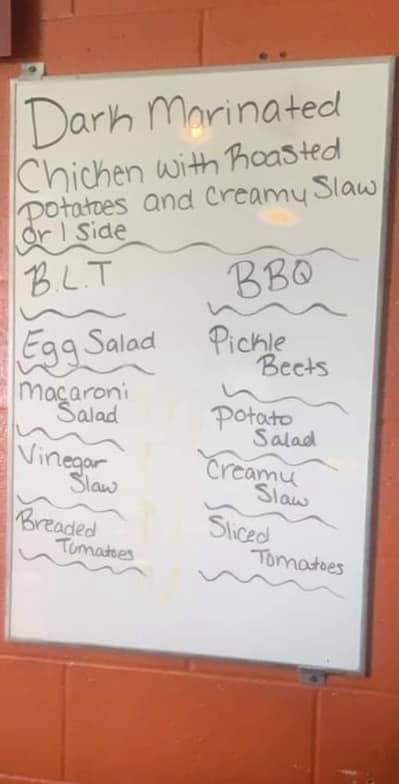 Dark Marinated
Chicken with Roasted
Potatoes and Creamy Slaw
or 1 side
B.L.T
BBQ
Egg Salad
Pickle
Beets
Macaroni
Salad
Potato
Salad
Vinegar
Slaw
Creamy
Slaw
Breaded
Tomatoes
Sliced
Tomatoes